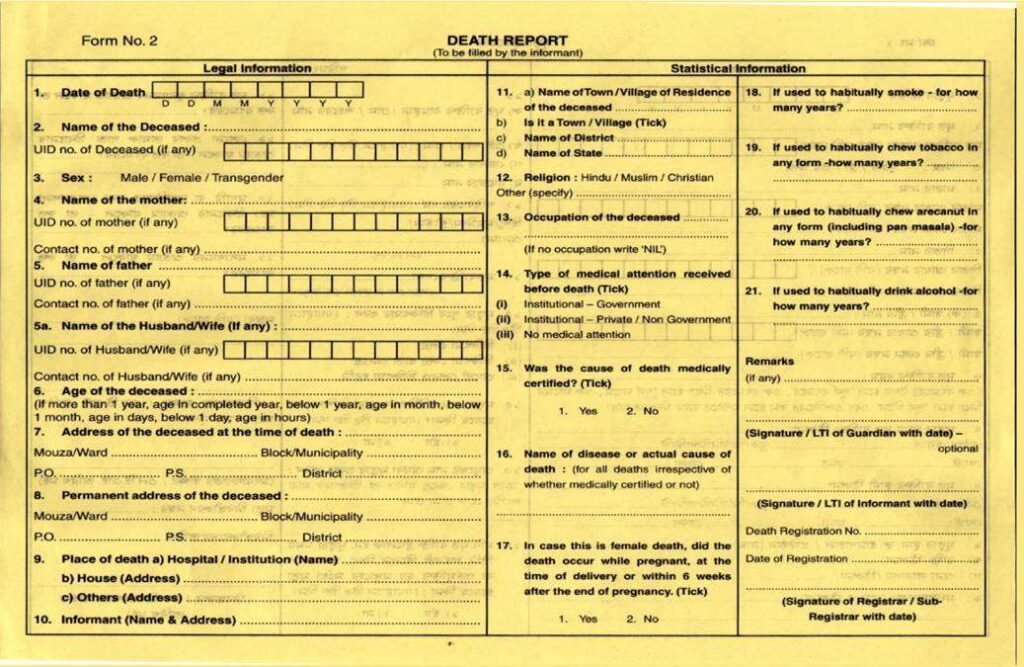 Form No. 2
DEATH REPORT
(To be filled by the informant)
Legal Information
1. Date of Death
D D M M Y Y Y Y
2. Name of the Deceased :
UID no. of Deceased (if any)
3. Sex : Male / Female / Transgender
4. Name of the mother:
UID no. of mother (if any)
Contact no. of mother (if any)
5. Name of father
UID no. of father (if any)
Contact no. of father (if any)
5a. Name of the Husband/Wife (If any) :
UID no. of Husband/Wife (if any)
Contact no. of Husband/Wife (if any)
6. Age of the deceased :
(if more than 1 year, age in completed year, below 1 year, age in month, below
1 month, age in days, below 1 day, age in hours)
7. Address of the deceased at the time of death :
Mouza/Ward Block/Municipality
P.O. P.S. District
8. Permanent address of the deceased :
Mouza/Ward Block/Municipality
P.O. P.S. District
9. Place of death a) Hospital / Institution (Name)
b) House (Address)
c) Others (Address)
10. Informant (Name & Address)
Statistical Information
11. a) Name of Town / Village of Residence
of the deceased
b) Is it a Town / Village (Tick)
c) Name of District
d) Name of State
12. Religion : Hindu / Muslim / Christian
Other (specify)
13. Occupation of the deceased
(If no occupation write 'NIL')
14. Type of medical attention received
before death (Tick)
(i) Institutional – Government
(ii) Institutional – Private / Non Government
(iii) No medical attention
15. Was the cause of death medically
certified? (Tick)
1. Yes 2. No
16. Name of disease or actual cause of
death : (for all deaths irrespective of
whether medically certified or not)
17. In case this is female death, did the
death occur while pregnant, at the
time of delivery or within 6 weeks
after the end of pregnancy. (Tick)
1. Yes 2. No
18. If used to habitually smoke - for how
many years?
19. If used to habitually chew tobacco in
any form -how many years?
20. If used to habitually chew arecanut in
any form (including pan masala) -for
how many years?
21. If used to habitually drink alcohol -for
how many years?
Remarks
(if any)
(Signature / LTI of Guardian with date) –
optional
(Signature / LTI of Informant with date)
Death Registration No.
Date of Registration
(Signature of Registrar / Sub-
Registrar with date)